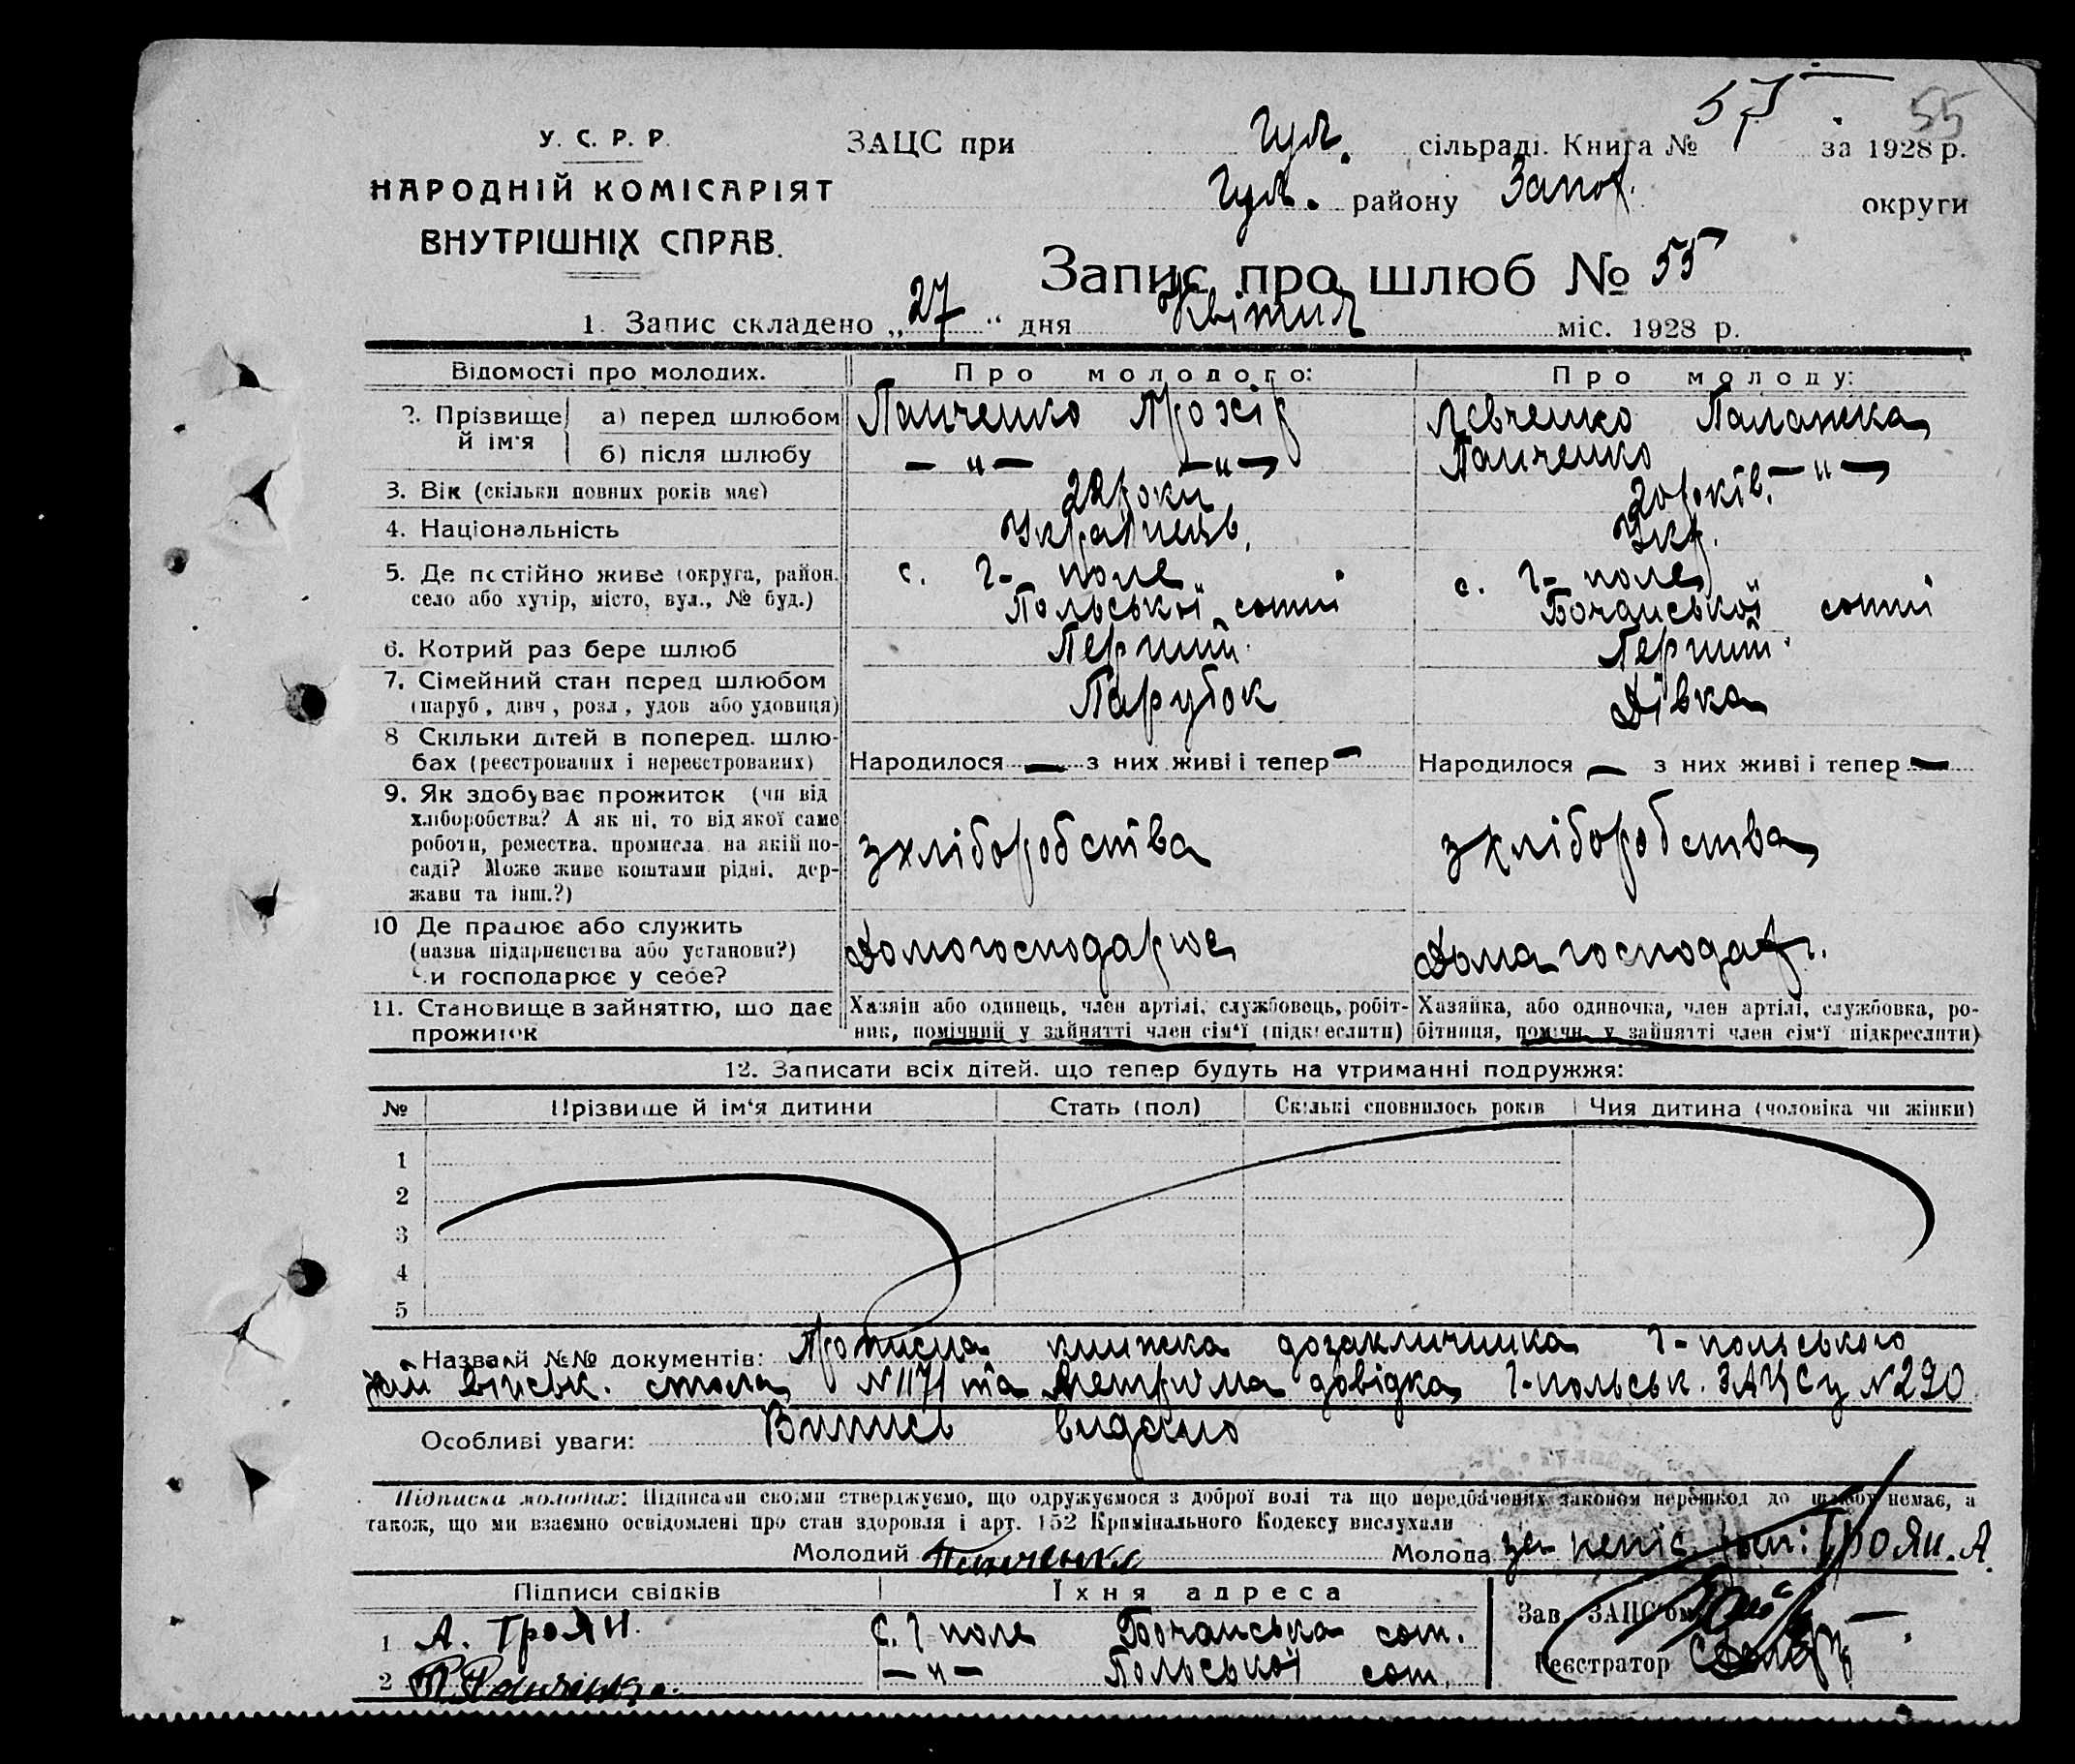 55
У. С. Р. Р.
НАРОДНІЙ КОМІСАРІЯТ
ВНУТРІШНІХ СПРАВ.
ЗАЦС при Гул. сільраді. Книга № 57 за 1928 р.
Гул. району Запор. округи
Запис про шлюб № 55
1. Запис складено „27" дня Квітня міс. 1928 р.
Відомості про молодих. Про молодого: Про молоду:
2. Прізвище й ім'я а) перед шлюбом Панченко Прохір Левченко Палажка
б) після шлюбу — „ — — „ — Панченко — „ —
3. Вік (скільки повних років має) 22 роки 20 років.
4. Національність Українець. Укр.
5. Де постійно живе (округа, район, с. Г-поле с. Г-поле
село або хутір, місто, вул., № буд.) Польської сотні Бочанської сотні
6. Котрий раз бере шлюб Перший Перший
7. Сімейний стан перед шлюбом Парубок Дівка
(паруб., дівч., розл., удов або удовиця)
8 Скільки дітей в поперед. шлю-
бах (реєстрованих і нереєстрованих) Народилося — з них живі і тепер — Народилося — з них живі і тепер —
9. Як здобуває прожиток (чи від
хліборобства? А як ні, то від якої саме
роботи, ремества, промисла, на якій по- зхліборобства зхліборобства
саді? Може живе коштами рідні, дер-
жави та інш.?)
10 Де працює або служить
(назва підприємства або установи?) Домогосподарює Дома господар.
Чи господарює у себе?
11. Становище в зайняттю, що дає Хазяїн або одинець, член артілі, службовець, робіт- Хазяйка, або одиночка, член артілі, службовка, ро-
прожиток ник, помічний у зайнятті член сім'ї (підкреслити) бітниця, поміч. у зайнятті член сім'ї підкреслити)
12. Записати всіх дітей, що тепер будуть на утриманні подружжя:
№ Прізвище й ім'я дитини Стать (пол) Скількі сповнилось років Чия дитина (чоловіка чи жінки)
1
2
3
4
5
Назва й №№ документів: Прописна книжка дозакличника Г-польського
військ. стола №1171 та довідка Г-польськ. ЗАЦСу №290
Особливі уваги: Витись видано
Підписи молодих: Підписами своїми стверджуємо, що одружуємося з доброї волі та що передбачених законом перешкод до шлюбу немає, а
також, що ми взаємно освідомлені про стан здоровля і арт. 152 Кримінального Кодексу вислухали
Молодий Панченко Молода за непис. Троян. А.
Підписи свідків Їхня адреса
1 А. Троян. С. Г поле Бочанська сот. Зав. ЗАЦС'ом
2 — „ — Польської сот. Реєстратор